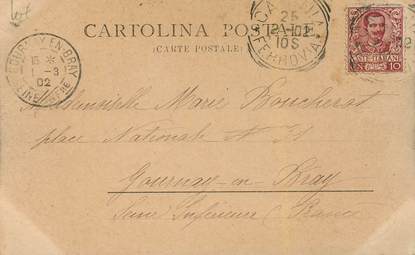 CARTOLINA POSTALE
(CARTE POSTALE)
GOURNAY-EN-BRAY
15 *
-3
02
FERROVIA
10 S
POSTE ITALIANE
10
Mademoiselle Marie Boucherot
place Nationale N
Gournay-en-Bray
Seine Inférieure (France)